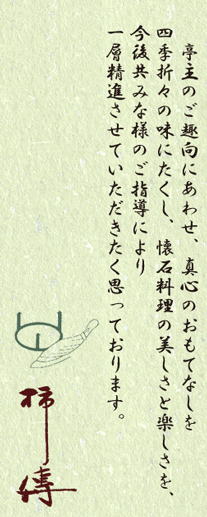 亭主のご趣向にあわせ、真心のおもてなしを
四季折々の味にたくし、懐石料理の美しさと楽しさを、
今後共みな様のご指導により
一層精進させていただきたく思っております。
柿傳